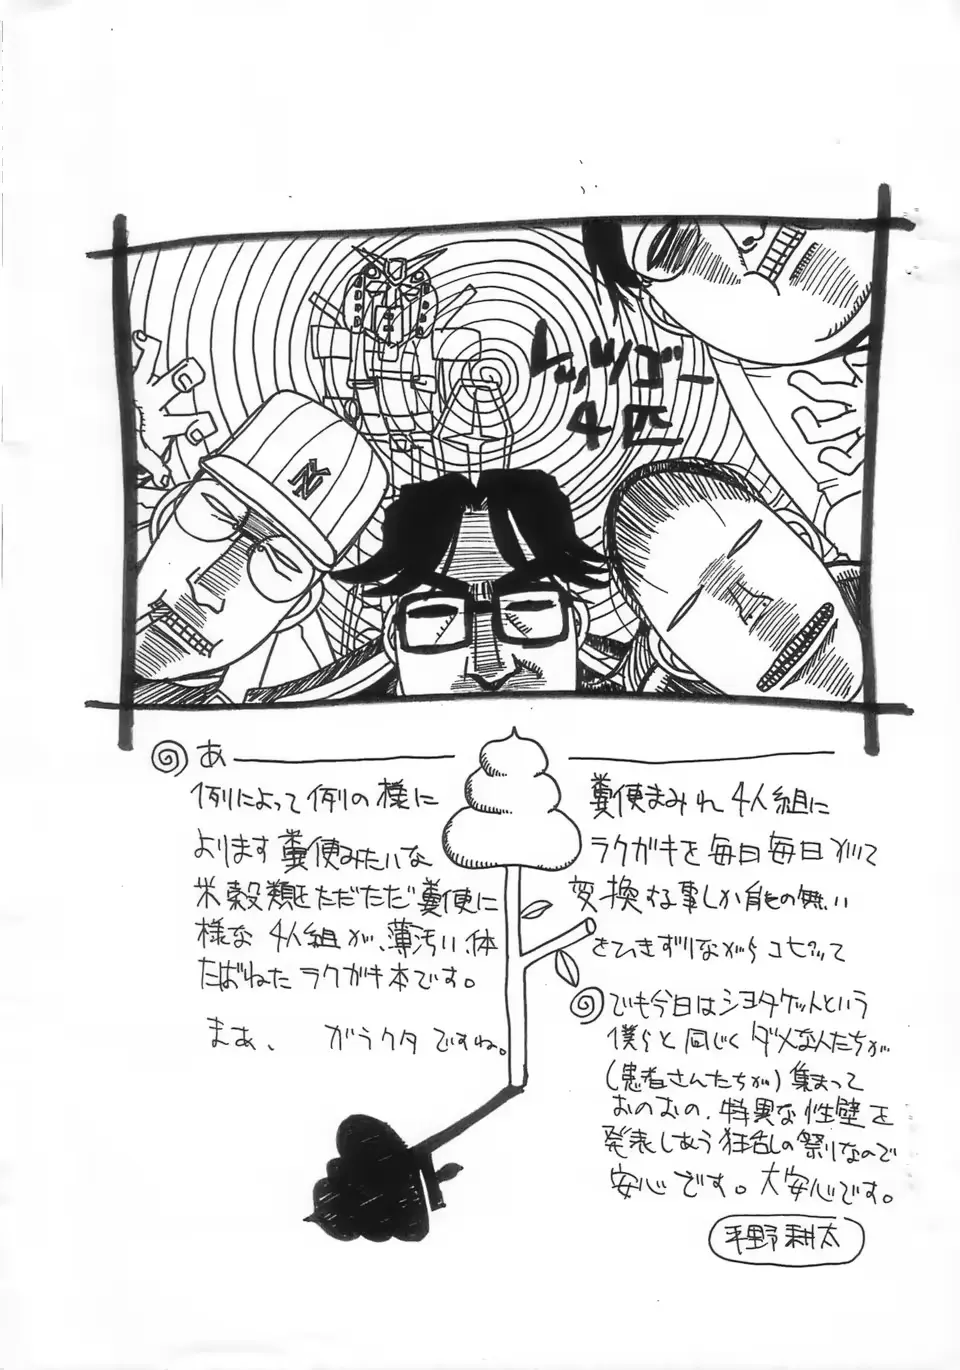 トッツゴー
4匹
NY
あ
例によって例の様に 糞便まみれ4人組に
よります糞便みたいな ラクガキを毎日毎日
米穀類をただただ糞便に 変換する事しか能の無い
様な 4人組が、薄汚い体 をひきずりながらコピッて
たばねたラクガキ本です。
まあ、 ガラクタですね。
でも今日はショタケットという
僕らと同じくダメな人たちが
(患者さんたちが)集まって
おのおの、特異な性壁を
発表しあう狂乱の祭りなので
安心です。大安心です。
平野耕太